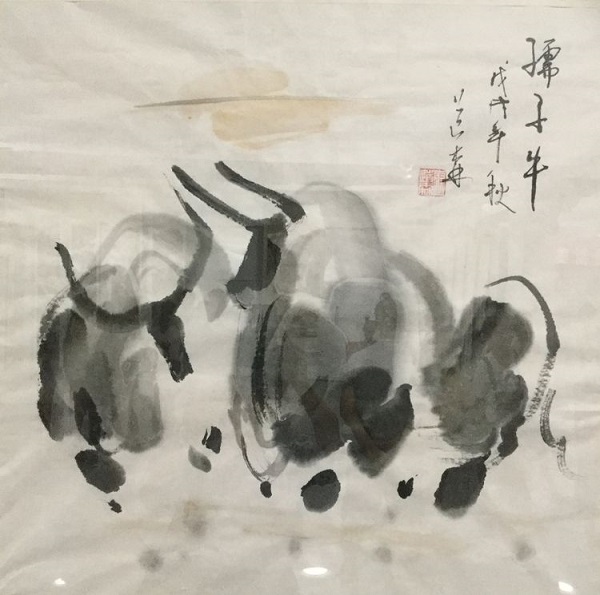 孺子牛
戊戌年秋